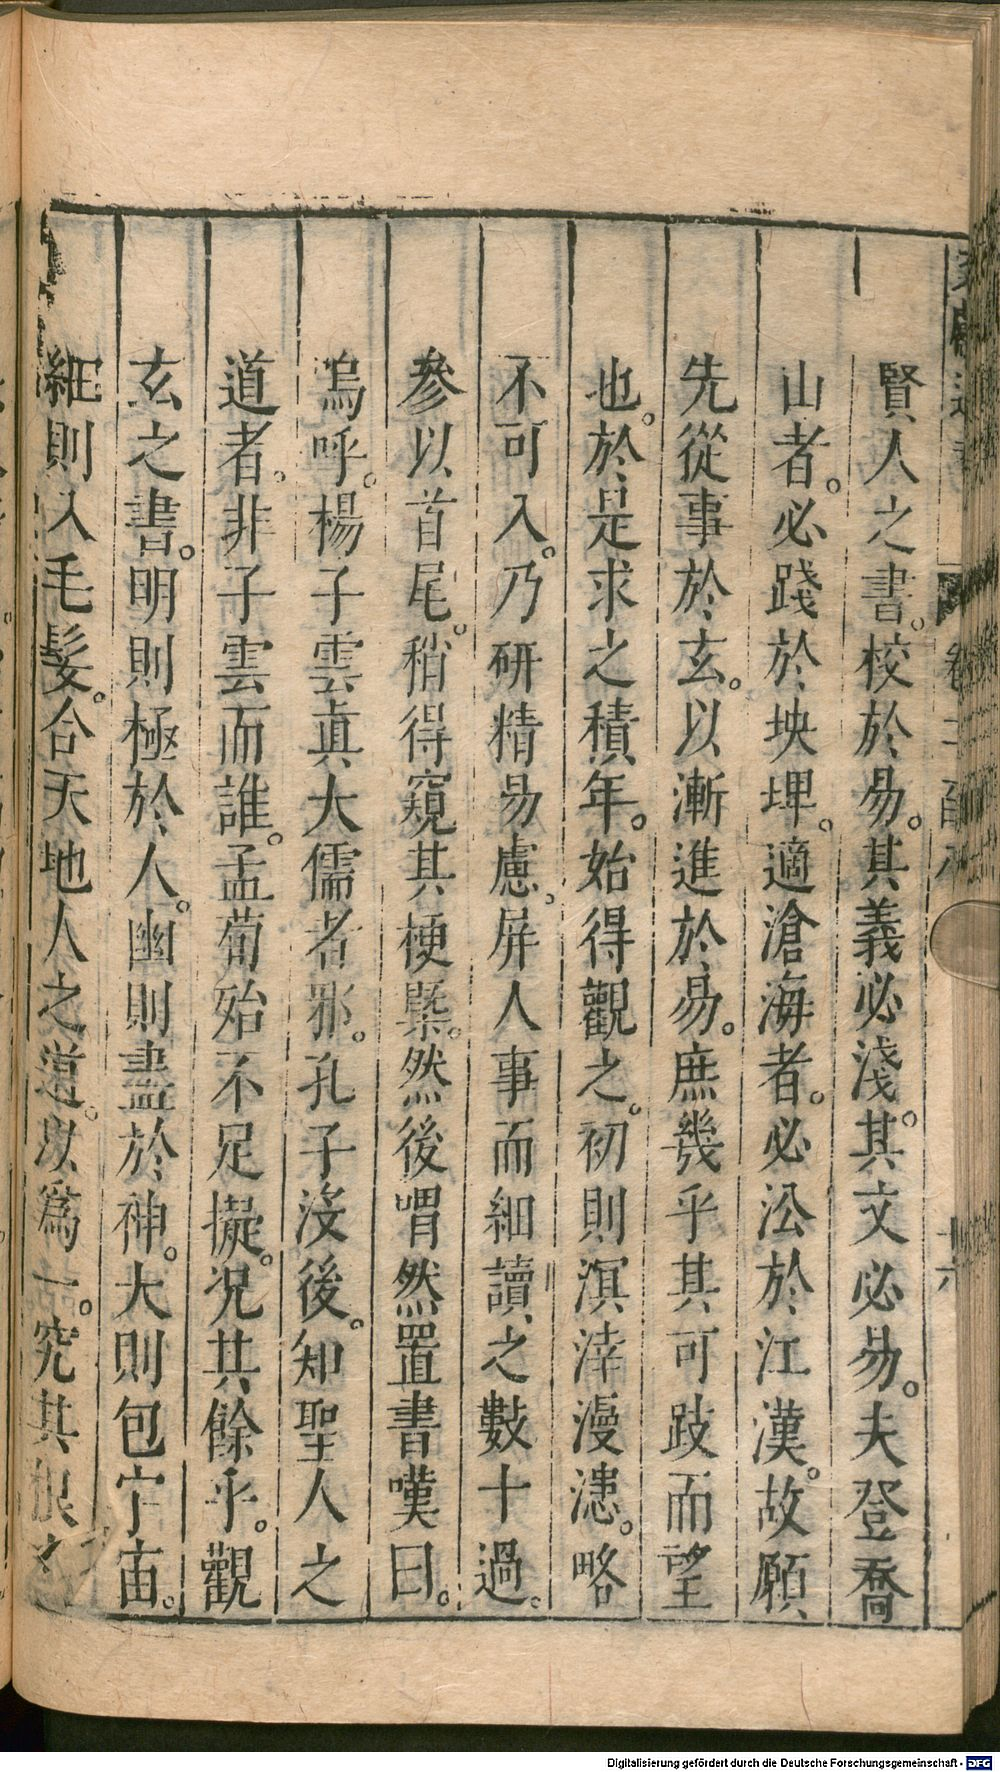 賢人之書。校於易。其義必淺。其文必易。夫登喬
山者。必踐於坱埋。適滄海者。必㳂於江漢。故願
先從事於玄。以漸進於易。庶幾乎其可跂而望
也。於是求之積年。始得觀之。初則溟涬漫漶。略
不可入。乃研精易慮。屏人事而細讀之數十過。
參以首尾。稍得窺其梗槩。然後喟然置書嘆曰。
嗚呼。楊子雲真大儒者邪。孔子沒後。知聖人之
道者。非子雲而誰。孟荀殆不足擬。況其餘乎。觀
玄之書。明則極於人。幽則盡於神。大則包宇宙。
細則入毛髮。合天地人之道。以為一。究其根
Digitalisierung gefördert durch die Deutsche Forschungsgemeinschaft - DFG